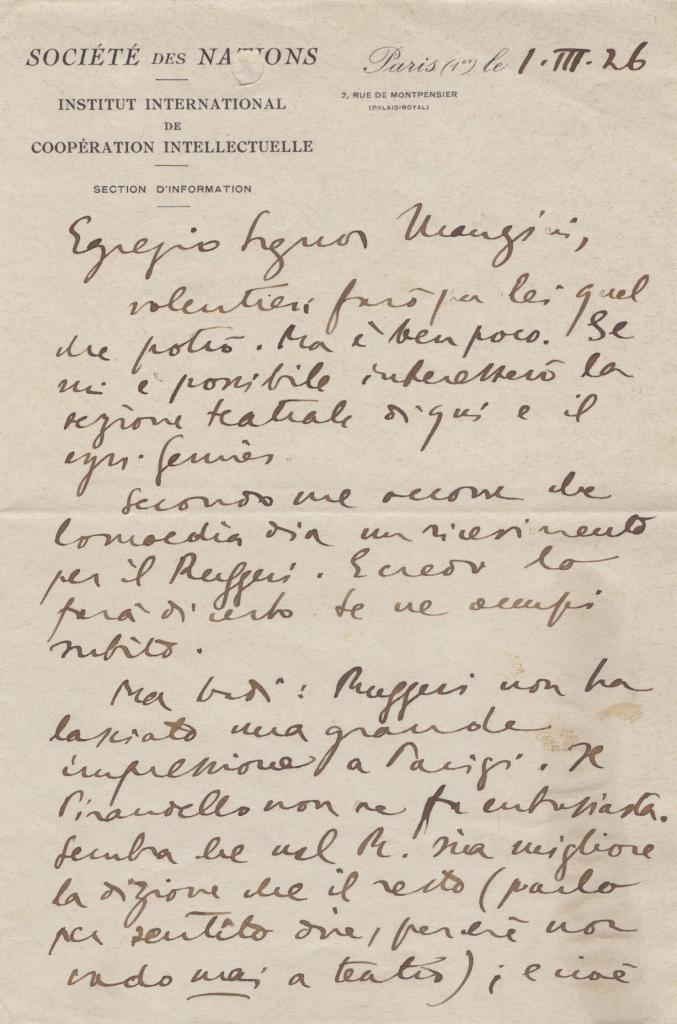 SOCIÉTÉ DES NATIONS
INSTITUT INTERNATIONAL
DE
COOPÉRATION INTELLECTUELLE
SECTION D'INFORMATION
Paris (1er) le 1·III·26
2, RUE DE MONTPENSIER
(PALAIS-ROYAL)
Egregio Signor Mangini,
volentieri farò per lei quel
che potrò. Ma è ben poco. Se
mi è possibile interesserò la
sezione teatrale di qui e il
Gemier
Secondo me occorre che
Comoedia dia un ricevimento
per il Ruggeri. E credo lo
farà di certo se ne occupi
subito.
Ma badi: Ruggeri non ha
lasciato una grande
impressione a Parigi. Il
Pirandello non ne fu entusiasta.
Sembra che nel R. sia migliore
la dizione che il resto (parlo
per sentito dire, perchè non
vado mai a teatro); e cioè